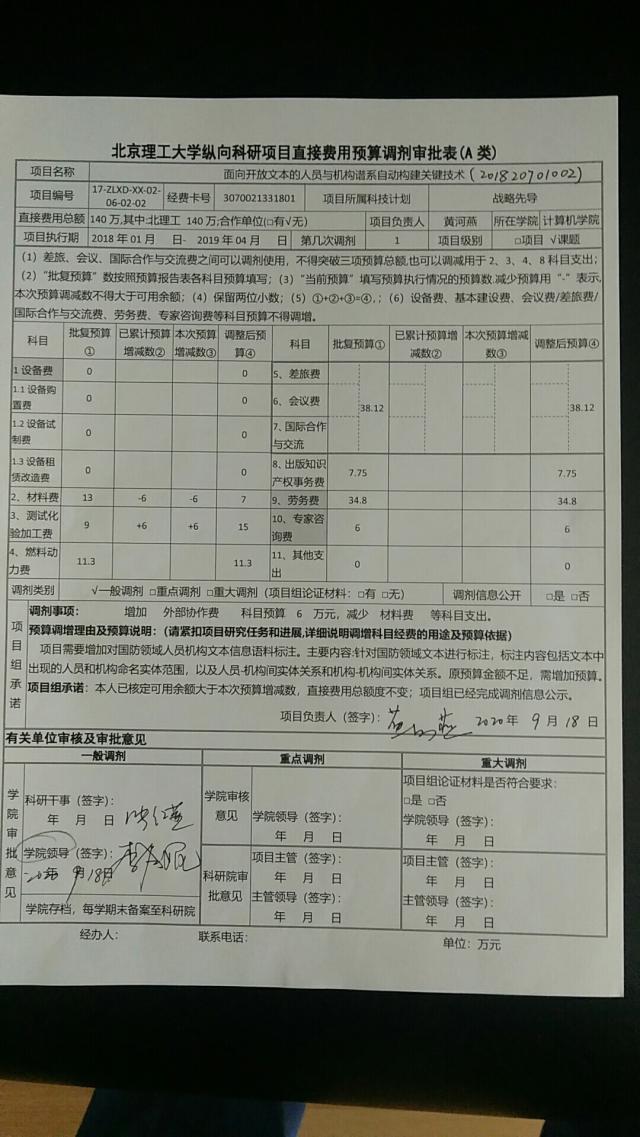 北京理工大学纵向科研项目直接费用预算调剂审批表(A 类)
项目名称 面向开放文本的人员与机构谱系自动构建关键技术(201820701002)
项目编号 17-ZLXD-XX-02-06-02-02 经费卡号 3070021331801 项目所属科技计划 战略先导
直接费用总额 140 万,其中:北理工 140 万;合作单位(□有√无) 项目负责人 黄河燕 所在学院 计算机学院
项目执行期 2018 年 01 月 日- 2019 年 04 月 日 第几次调剂 1 项目级别 □项目 √课题
(1)差旅、会议、国际合作与交流费之间可以调剂使用，不得突破三项预算总额,也可以调减用于 2、3、4、8 科目支出；
(2)“批复预算”数按照预算报告表各科目预算填写；(3)“当前预算”填写预算执行情况的预算数.减少预算用“-”表示,
本次预算调减数不得大于可用余额；(4）保留两位小数；(5）①+②+③=④,；(6）设备费、基本建设费、会议费/差旅费/
国际合作与交流费、劳务费、专家咨询费等科目预算不得调增。
科目 批复预算① 已累计预算增减数② 本次预算增减数③ 调整后预算④ 科目 批复预算① 已累计预算增减数② 本次预算增减数③ 调整后预算④
1 设备费 0 0 5、差旅费
1.1 设备购置费 0 0 6、会议费 38.12 38.12
1.2 设备试制费 0 0 7、国际合作与交流
1.3 设备租赁改造费 0 0 8、出版知识产权事务费 7.75 7.75
2、材料费 13 -6 -6 7 9、劳务费 34.8 34.8
3、测试化验加工费 9 +6 +6 15 10、专家咨询费 6 6
4、燃料动力费 11.3 11.3 11、其他支出 0 0
调剂类别 √一般调剂 □重点调剂 □重大调剂（项目组论证材料：□有 □无） 调剂信息公开 □是 □否
项目组承诺
调剂事项： 增加 外部协作费 科目预算 6 万元，减少 材料费 等科目支出。
预算调增理由及预算说明：（请紧扣项目研究任务和进展,详细说明调增科目经费的用途及预算依据）
项目需要增加对国防领域人员机构文本信息语料标注。主要内容:针对国防领域文本进行标注，标注内容包括文本中
出现的人员和机构命名实体范围，以及人员-机构间实体关系和机构-机构间实体关系。原预算金额不足，需增加预算。
项目组承诺：本人已核定可用余额大于本次预算增减数，直接费用总额度不变；项目组已经完成调剂信息公示。
项目负责人（签字）： 2020 年 9 月 18 日
有关单位审核及审批意见
一般调剂 重点调剂 重大调剂
学院审批意见
科研干事（签字）：
年 月 日
学院领导（签字）：
年 9 月 18 日
学院存档，每学期末备案至科研院
学院审核意见
学院领导（签字）：
年 月 日
科研院审批意见
项目主管（签字）：
年 月 日
主管领导（签字）：
年 月 日
项目组论证材料是否符合要求：
□是 □否
学院领导（签字）：
年 月 日
项目主管（签字）：
年 月 日
主管领导（签字）：
年 月 日
经办人： 联系电话： 单位：万元